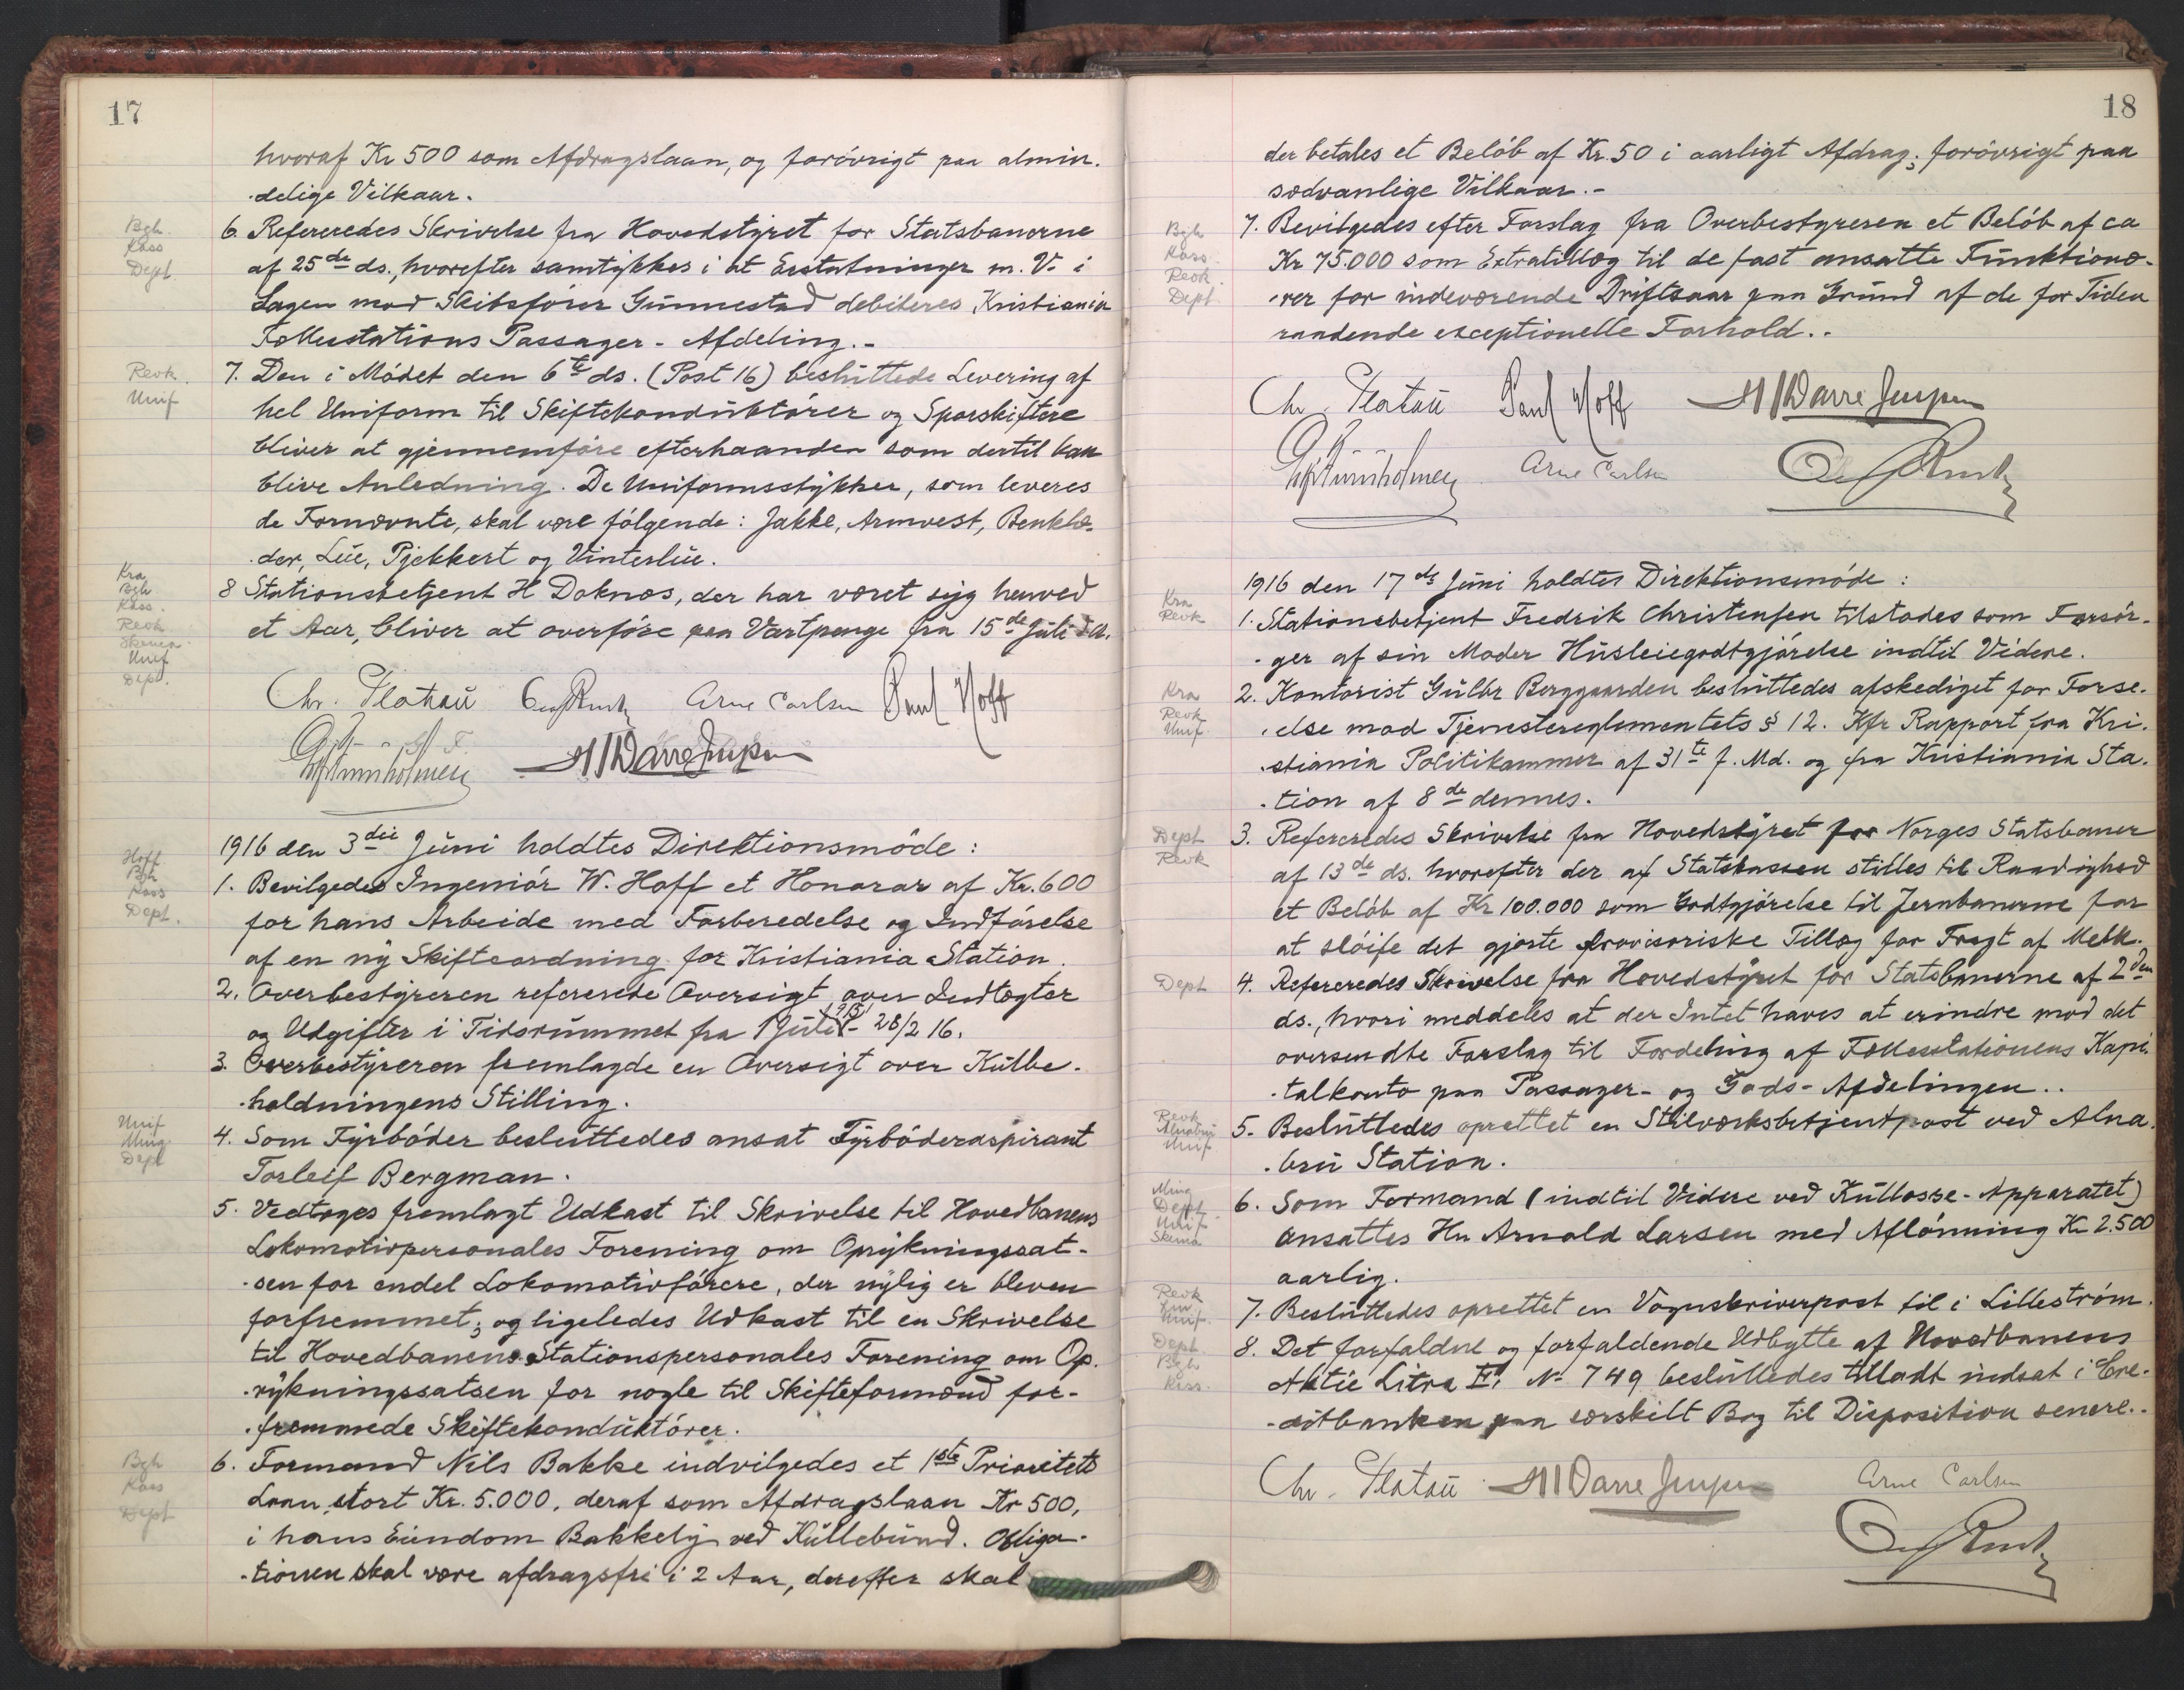 17
hvoraf Kr 500 som Afdragslaan, og forövrigt paa almin-
delige Vilkaar.
Bgh.
Kass
Dept
6. Refereredes Skrivelse fra Hovedstyret for Statsbanerne
af 25de ds., hvorefter samtykkes i at Erstatninger m. V. i
Sagen mod Skibsförer Gunnestad debiteres Kristiania
Fællesstations Passager-Afdeling.-
Revk.
Unif
7. Den i Mödet den 6te ds. (Post 16) besluttede Levering af
hel Uniform til Skiftekonduktörer og Sporskiftere
bliver at gjennemföre efterhaanden som dertil kan
blive Anledning. De Uniformsstykker, som leveres
de Fornævnte, skal være fölgende: Jakke, Armvest, Benklæ-
der, Lue, Pjekkert og Vinterlue.
Kra
Bgh
Kass.
Revk
Skema
Unif
Dept.
8 Stationsbetjent H Doknæs, der har været syg henved
et Aar, bliver at overföre paa Vartpenge fra 15de Juli d.A.
Chr. Platou Arne Carlsen Paul Hoff
1916 den 3die Juni holdtes Direktionsmöde:
Hoff
Bgh
Kass
Dept.
1. Bevilgedes Ingeniör W. Hoff et Honorar af Kr. 600
for hans Arbeide med Forberedelse og Indförelse
af en ny Skifteordning for Kristiania Station.
2. Overbestyreren refererede Oversigt over Indtægter
og Udgifter i Tidsrummet fra 1 Juli 1915 - 28/2 16.
3. Overbestyreren fremlagde en Oversigt over Kulbe-
holdningens Stilling.
Unif
Ming.
Dept
4. Som Fyrböder besluttedes ansat Fyrböderaspirant
Torleif Bergman.
5. Vedtoges fremlagt Udkast til Skrivelse til Hovedbanens
Lokomotivpersonales Forening om Oprykningssat-
sen for endel Lokomotivförere, der nylig er bleven
forfremmet; og ligeledes Udkast til en Skrivelse
til Hovedbanens Stationspersonales Forening om Op-
rykningssatsen for nogle til Skifteformænd for-
fremmede Skiftekonduktörer.
Bgh
Kass
Dept
6. Formand Nils Bakke indvilgedes et 1ste Prioritets
Laan, stort Kr. 5.000, deraf som Afdragslaan Kr 500,
i hans Eiendom Bakkely ved Kullebund. Obliga-
tionen skal være afdragsfri i 2 Aar, derefter skal
18
der betales et Belöb af Kr. 50 i aarligt Afdrag; forövrigt paa
sædvanlige Vilkaar.-
Bgh
Kass.
Revk.
Dept
7. Bevilgedes efter Forslag fra Overbestyreren et Belöb af ca
Kr 75.000 som Extratillæg til de fast ansatte Funktionæ-
rer for indeværende Driftsaar paa Grund af de for Tiden
raadende exceptionelle Forhold..
Chr. Platou Paul Hoff
Arne Carlsen
1916 den 17de Juni holdtes Direktionsmöde:
Kra
Revk
1. Stationsbetjent Fredrik Christensen tilstodes som Forsör-
ger af sin Moder Husleiegodtgjörelse indtil Videre.
Kra
Revk
Unif.
2. Kontorist Gulbr Berggaarden besluttedes afskediget for Forse-
else mod Tjenestereglementets § 12. Kfr Rapport fra Kri-
stiania Politikammer af 31te f. Md. og fra Kristiania Sta-
tion af 8de dennes.
Dept
Revk
3. Refereredes Skrivelse fra Hovedstyret for Norges Statsbaner
af 13de ds. hvorefter der af Statskassen stilles til Raadighed
et Belöb af Kr 100.000 som Godtgjörelse til Jernbanerne for
at slöife det gjorte provisoriske Tillæg for Fragt af Melk.
Dept
4. Refereredes Skrivelse fra Hovedstyret for Statsbanerne af 2den
ds., hvori meddeles at der Intet haves at erindre mod det
oversendte Forslag til Fordeling af Fællesstationens Kapi-
talkonto paa Passager- og Gods-Afdelingen..
Revk
Alnabru
Unif
5. Besluttedes oprettet en Stilværksbetjentpost ved Alna-
bru Station.
Ming
Dept
Unif
Skema
6. Som Formand (indtil Videre ved Kullosse-Apparatet)
ansattes Hr Arnold Larsen med Aflönning Kr 2.500
aarlig.
Revk
Unif.
7. Besluttedes oprettet en Vognskriverpost til i Lilleström.
Dept.
Bgh.
Kass.
8. Det forfaldne og forfaldende Udbytte af Hovedbanens
Aktie Litra E, No 749 besluttedes tilladt indsat i Cre-
ditbanken paa særskilt Bog til Disposition senere..
Chr. Platou Arne Carlsen